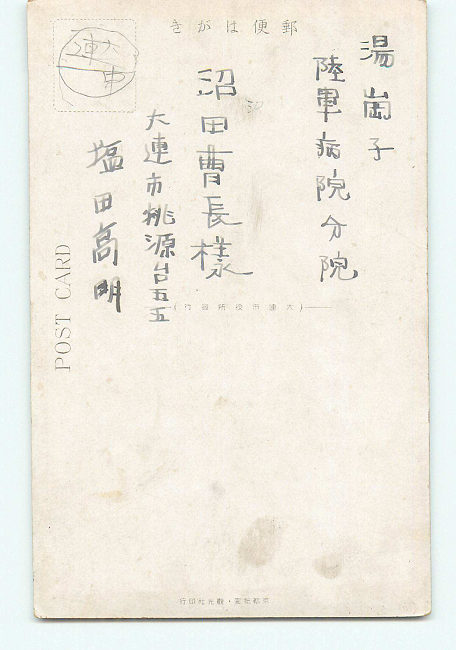 きがは便郵
大連
市
湯崗子
陸軍病院分院
沼田曹長様
沼
大連市桃源台五五
塩田高明
(大連市役所發行)
POST CARD